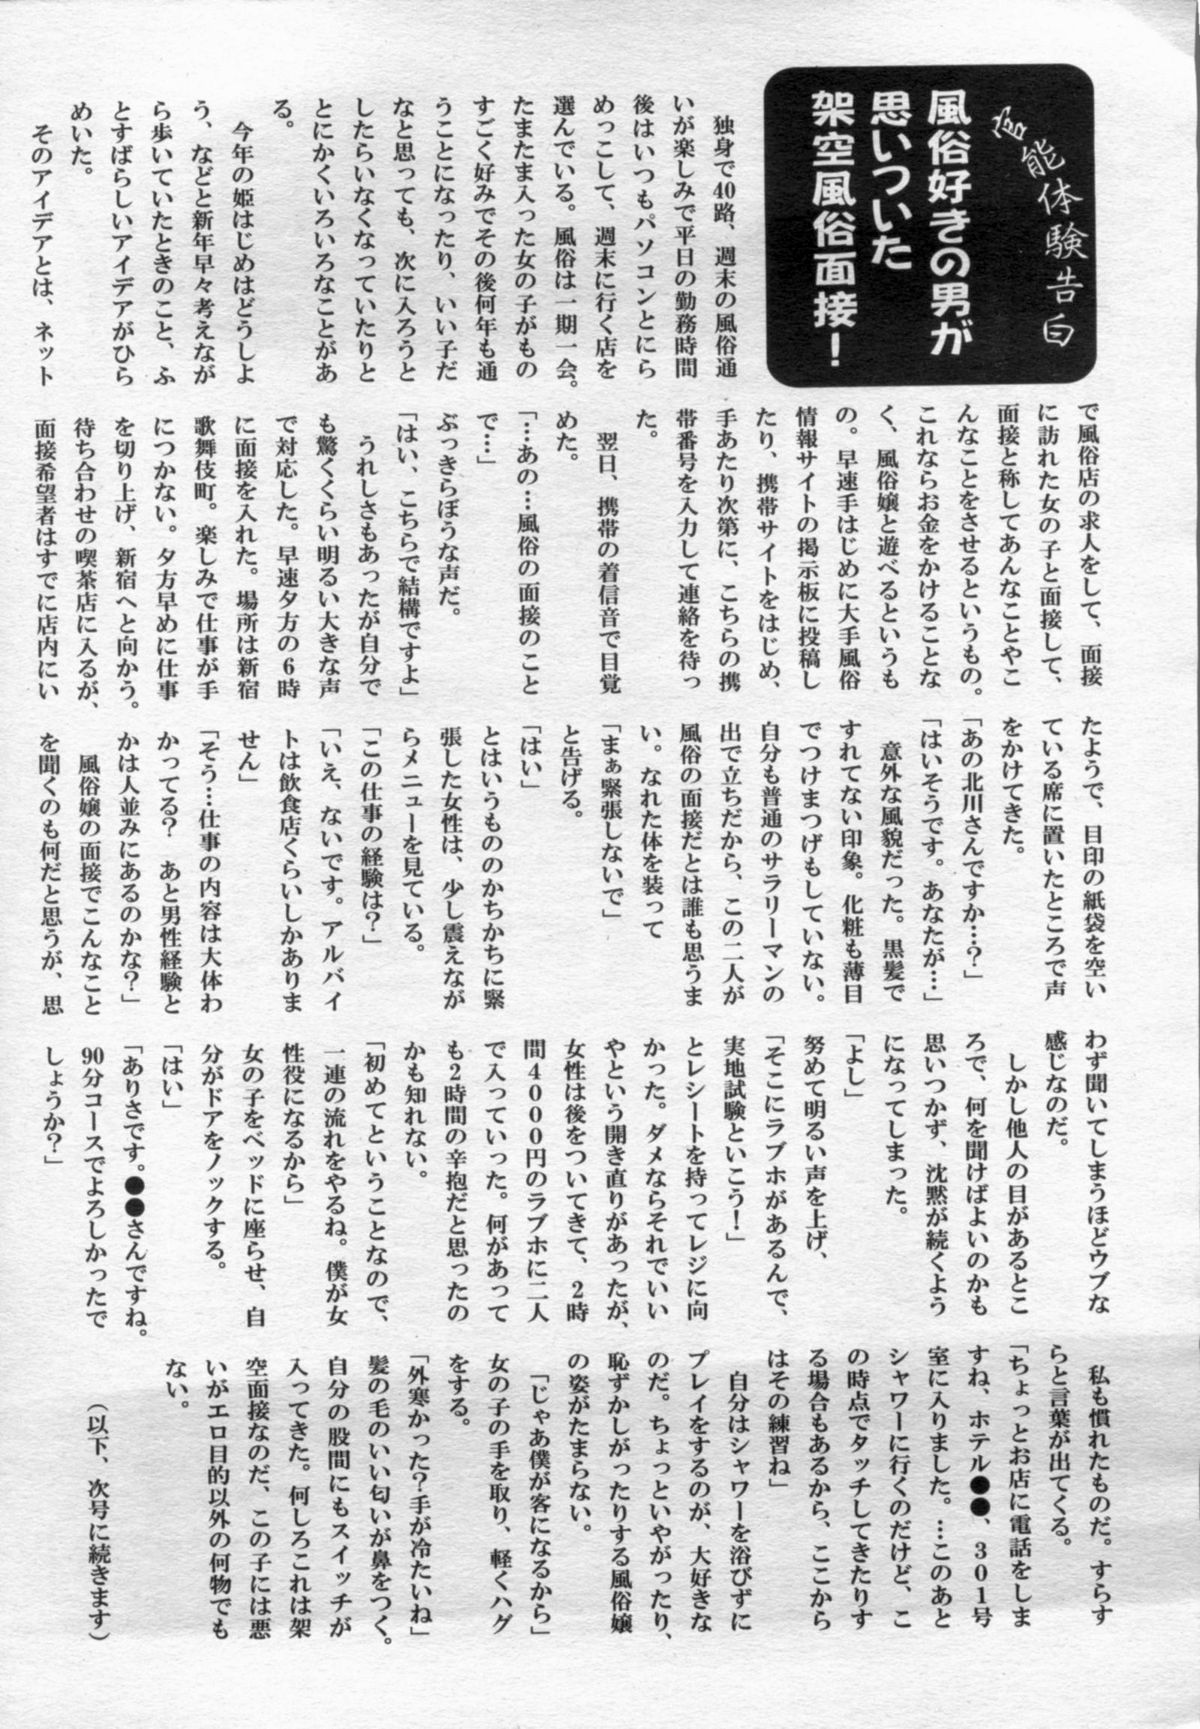 官能体験告白
風俗好きの男が
思いついた
架空風俗面接！
　独身で40路、週末の風俗通
いが楽しみで平日の勤務時間
後はいつもパソコンとにら
めっこして、週末に行く店を
選んでいる。風俗は一期一会。
たまたま入った女の子がもの
すごく好みでその後何年も通
うことになったり、いい子だ
なと思っても、次に入ろうと
したらいなくなっていたりと
とにかくいろいろなことがあ
る。
　今年の姫はじめはどうしよ
う、などと新年早々考えなが
ら歩いていたときのこと、ふ
とすばらしいアイデアがひら
めいた。
　そのアイデアとは、ネット
で風俗店の求人をして、面接
に訪れた女の子と面接して、
面接と称してあんなことやこ
んなことをさせるというもの。
これならお金をかけることな
く、風俗嬢と遊べるというも
の。早速手はじめに大手風俗
情報サイトの掲示板に投稿し
たり、携帯サイトをはじめ、
手あたり次第に、こちらの携
帯番号を入力して連絡を待っ
た。
　翌日、携帯の着信音で目覚
めた。
「…あの…風俗の面接のこと
で…」
ぶっきらぼうな声だ。
「はい、こちらで結構ですよ」
　うれしさもあったが自分で
も驚くくらい明るい大きな声
で対応した。早速夕方の6時
に面接を入れた。場所は新宿
歌舞伎町。楽しみで仕事が手
につかない。夕方早めに仕事
を切り上げ、新宿へと向かう。
待ち合わせの喫茶店に入るが、
面接希望者はすでに店内にい
たようで、目印の紙袋を空い
ている席に置いたところで声
をかけてきた。
「あの北川さんですか…？」
「はいそうです。あなたが…」
　意外な風貌だった。黒髪で
すれてない印象。化粧も薄目
でつけまつげもしていない。
自分も普通のサラリーマンの
出で立ちだから、この二人が
風俗の面接だとは誰も思うま
い。なれた体を装って
「まぁ緊張しないで」
と告げる。
「はい」
とはいうもののかちかちに緊
張した女性は、少し震えなが
らメニューを見ている。
「この仕事の経験は？」
「いえ、ないです。アルバイ
トは飲食店くらいしかありま
せん」
「そう…仕事の内容は大体わ
かってる？　あと男性経験と
かは人並みにあるのかな？」
　風俗嬢の面接でこんなこと
を聞くのも何だと思うが、思
わず聞いてしまうほどウブな
感じなのだ。
　しかし他人の目があるとこ
ろで、何を聞けばよいのかも
思いつかず、沈黙が続くよう
になってしまった。
「よし」
努めて明るい声を上げ、
「そこにラブホがあるんで、
実地試験といこう！」
とレシートを持ってレジに向
かった。ダメならそれでいい
やという開き直りがあったが、
女性は後をついてきて、2時
間4000円のラブホに二人
で入っていった。何があって
も2時間の辛抱だと思ったの
かも知れない。
「初めてということなので、
一連の流れをやるね。僕が女
性役になるから」
女の子をベッドに座らせ、自
分がドアをノックする。
「はい」
「ありさです。●●さんですね。
90分コースでよろしかったで
しょうか？」
　私も慣れたものだ。すらす
らと言葉が出てくる。
「ちょっとお店に電話をしま
すね、ホテル●●、301号
室に入りました。…このあと
シャワーに行くのだけど、こ
の時点でタッチしてきたりす
る場合もあるから、ここから
はその練習ね」
　自分はシャワーを浴びずに
プレイをするのが、大好きな
のだ。ちょっといやがったり、
恥ずかしがったりする風俗嬢
の姿がたまらない。
　「じゃあ僕が客になるから」
女の子の手を取り、軽くハグ
をする。
「外寒かった？手が冷たいね」
髪の毛のいい匂いが鼻をつく。
自分の股間にもスイッチが
入ってきた。何しろこれは架
空面接なのだ、この子には悪
いがエロ目的以外の何物でも
ない。
（以下、次号に続きます）